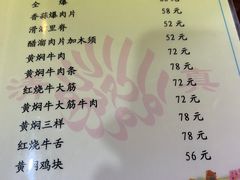 全爆
香蒜爆肉片 58元
滑溜里脊 58元
醋溜肉片加木须 52元
黄焖牛肉 72元
黄焖牛肉条 78元
红烧牛大筋 72元
黄焖牛大筋牛肉 72元
黄焖三样 78元
红烧牛舌 78元
黄焖鸡块 56元